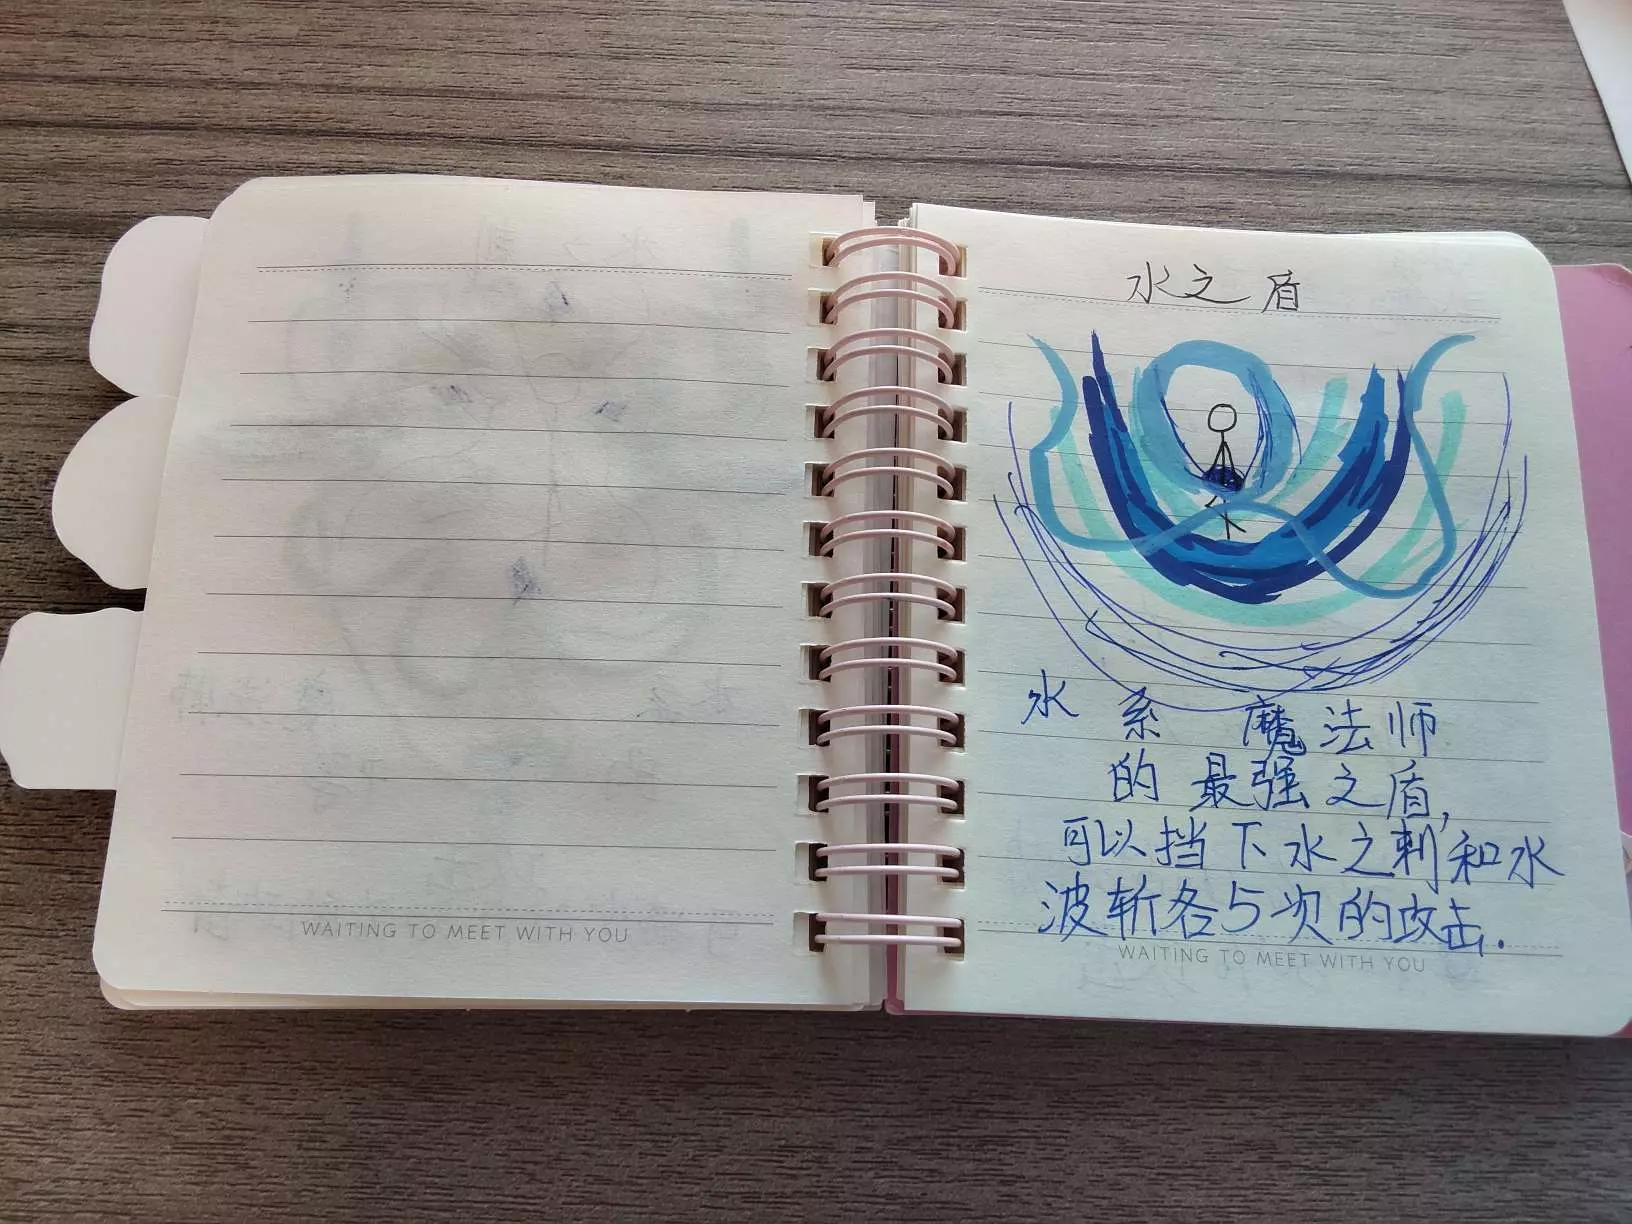 WAITING TO MEET WITH YOU
水之盾
水系魔法师
的最强之盾,
可以挡下水之刺和水
波斩各5次的攻击.
WAITING TO MEET WITH YOU